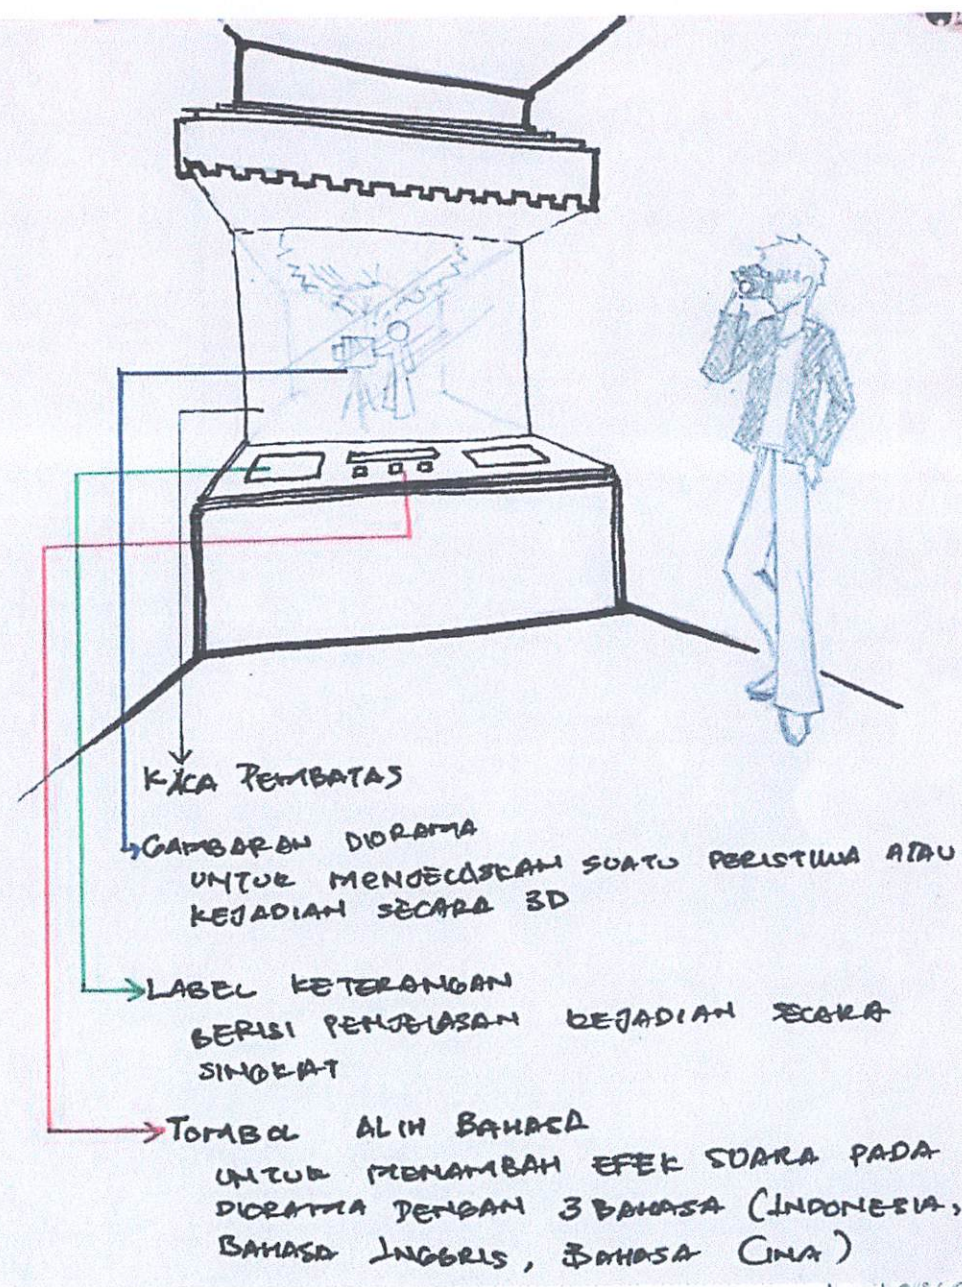 KACA PEMBATAS
GAMBARAN DIORAMA
UNTUK MENJELASKAN SUATU PERISTIWA ATAU
KEJADIAN SECARA 3D
LABEL KETERANGAN
BERISI PENJELASAN KEJADIAN SECARA
SINGKAT
TOMBOL ALIH BAHASA
UNTUK MENAMBAH EFEK SUARA PADA
DIORAMA DENGAN 3 BAHASA (INDONESIA,
BAHASA INGGRIS, BAHASA CINA)